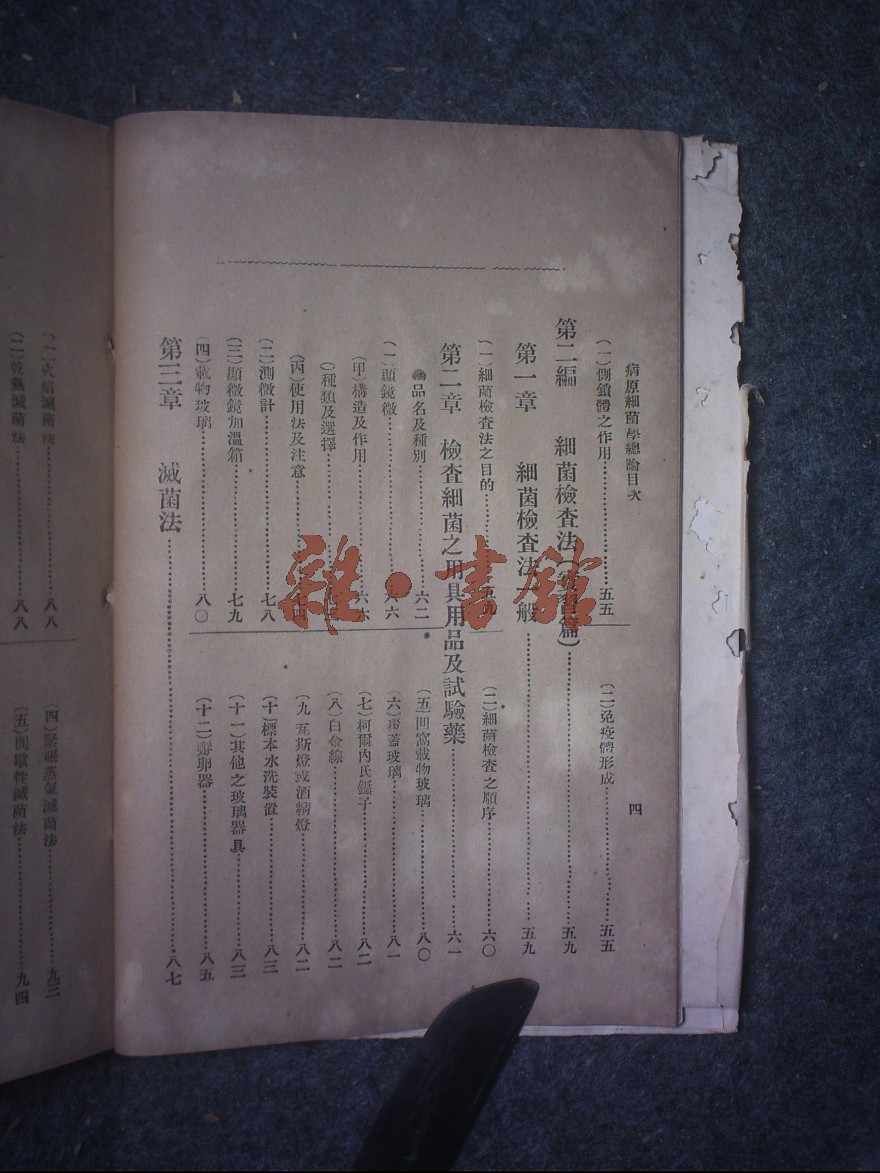 病原細菌學總論目次
四
(一)側鎖體之作用……五五
(二)免疫體形成……五五
第二編 細菌檢查法(實習篇)……五九
第一章 細菌檢查法一般……五九
(一)細菌檢查法之目的……五九
(二)細菌檢查之順序……六〇
第二章 檢查細菌之用具用品及試驗藥……六一
品名及種別……六二
(一)顯鏡微……六六
(甲)構造及作用……六六
(種類及選擇……
(丙)使用法及注意……七四
(二)測微計……七八
(三)顯微鏡加溫箱……七九
(四)載物玻璃……八〇
(五)凹窩載物玻璃……八〇
(六)覆蓋玻璃……八一
(七)柯爾內氏鑷子……八二
(八)白金線……八二
(九 瓦斯燈或酒精燈……八二
(十)標本水洗裝置……八三
(十一)其他之玻璃器具……八三
(十二)孵卵器……八五
第三章 滅菌法……八七
(一)火焰滅菌法……八八
(二)乾熱滅菌法……八八
(四)緊張蒸氣滅菌法……九三
(五)間歇性滅菌法……九四
雜·書館